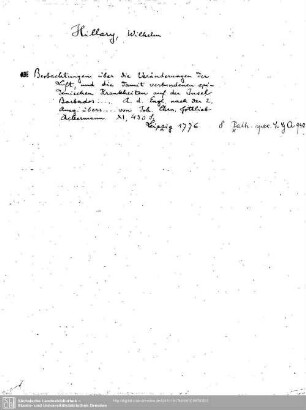 Hillary, Wilhelm
Beobachtungen über die Veränderungen der
Luft, und die damit verbundenen epi-
demischen Krankheiten auf der Insel
Barbados.... A. d. Engl. nach der 2.
Ausg. übers.... von Joh. Chrn. Gottlieb
Ackermann XI, 430 S.
Leipzig 1776. 8 Path. spec.
Sächsische Landesbibliothek -
Staats- und Universitätsbibliothek Dresden